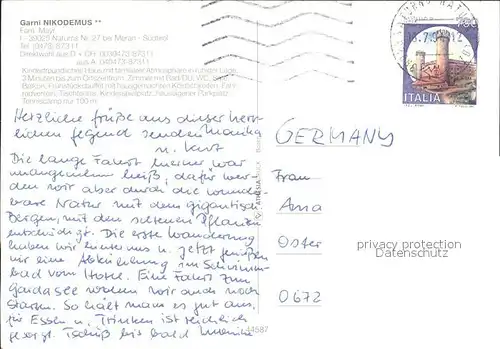 Garni NIKODEMUS **
Fam. Mayr
I - 39025 Naturns Nr. 27 bei Meran - Südtirol
Tel. (0473) 87311
Direktwahl aus D + CH 0039473-87311
aus A 040473-87311
Kinderfreundliches Haus mit familiärer Atmosphäre in ruhiger Lage,
3 Minuten bis zum Ortszentrum. Zimmer mit Bad/DU, WC,
Balkon, Frühstücksbuffet mit hausgemachten Köstlichkeiten,
Tischtennis, Kinderspielplatz, hauseigener Parkplatz
Tennisplatz nur 100 m
Herzliche Grüße aus dieser herr-
lichen Gegend senden Monika
u. Kurt
Die lange Fahrt hierher war
unangenehm heiß, dafür wer-
den wir aber durch die wunder-
bare Natur mit dem gigantisch
Bergen, mit den seltenen Pflanzen
entschädigt. Die erste Wanderung
haben wir hinter uns u. jetzt genießen
wir eine Abkühlung im Schwimm-
bad vom Hotel. Eine Fahrt zum
Gardasee wollen wir auch noch
starten. So hält man es gut aus,
für Essen u. Trinken ist reichlich
gesorgt. Tschüß bis bald Monika
GERMANY
Frau
Anna
Oster
0672
ITALIA
ATHESIA
14587
privacy protection
Oldthing